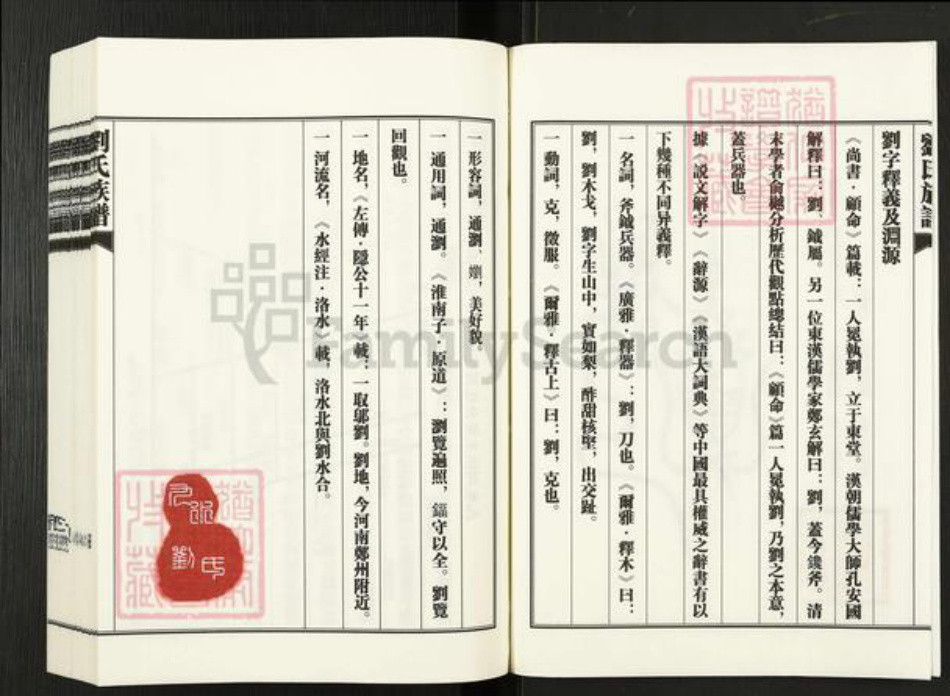 劉氏族譜
劉字釋義及淵源
《尚書·顧命》篇載：一人冕執劉，立于東堂。漢朝儒學大師孔安國
解釋曰：劉、鉞屬。另一位東漢儒學家鄭玄解曰：劉，蓋今鑱斧。清
末學者俞樾分析歷代觀點總結曰：《顧命》篇一人冕執劉，乃劉之本意，
蓋兵器也。
據《說文解字》《辭源》《漢語大詞典》等中國最具權威之辭書有以
下幾種不同异義釋。
一名詞，斧鉞兵器。《廣雅·釋器》：劉，刀也。《爾雅·釋木》曰：
劉，劉木戈，劉字生山中，實如梨，酢甜核堅，出交趾。
一動詞，克，徵服。《爾雅·釋古上》曰：劉，克也。
一形容詞，通瀏、嬼，美好貌。
一通用詞，通瀏。《淮南子·原道》：瀏覽遍照，守以全。劉覽
回觀也。
一地名，《左傳·隱公十一年》載：一取鄔劉。劉地，今河南鄭州附近。
一河流名，《水經注·洛水》載，洛水北與劉水合。
劉氏族譜
劉氏
FamilySearch